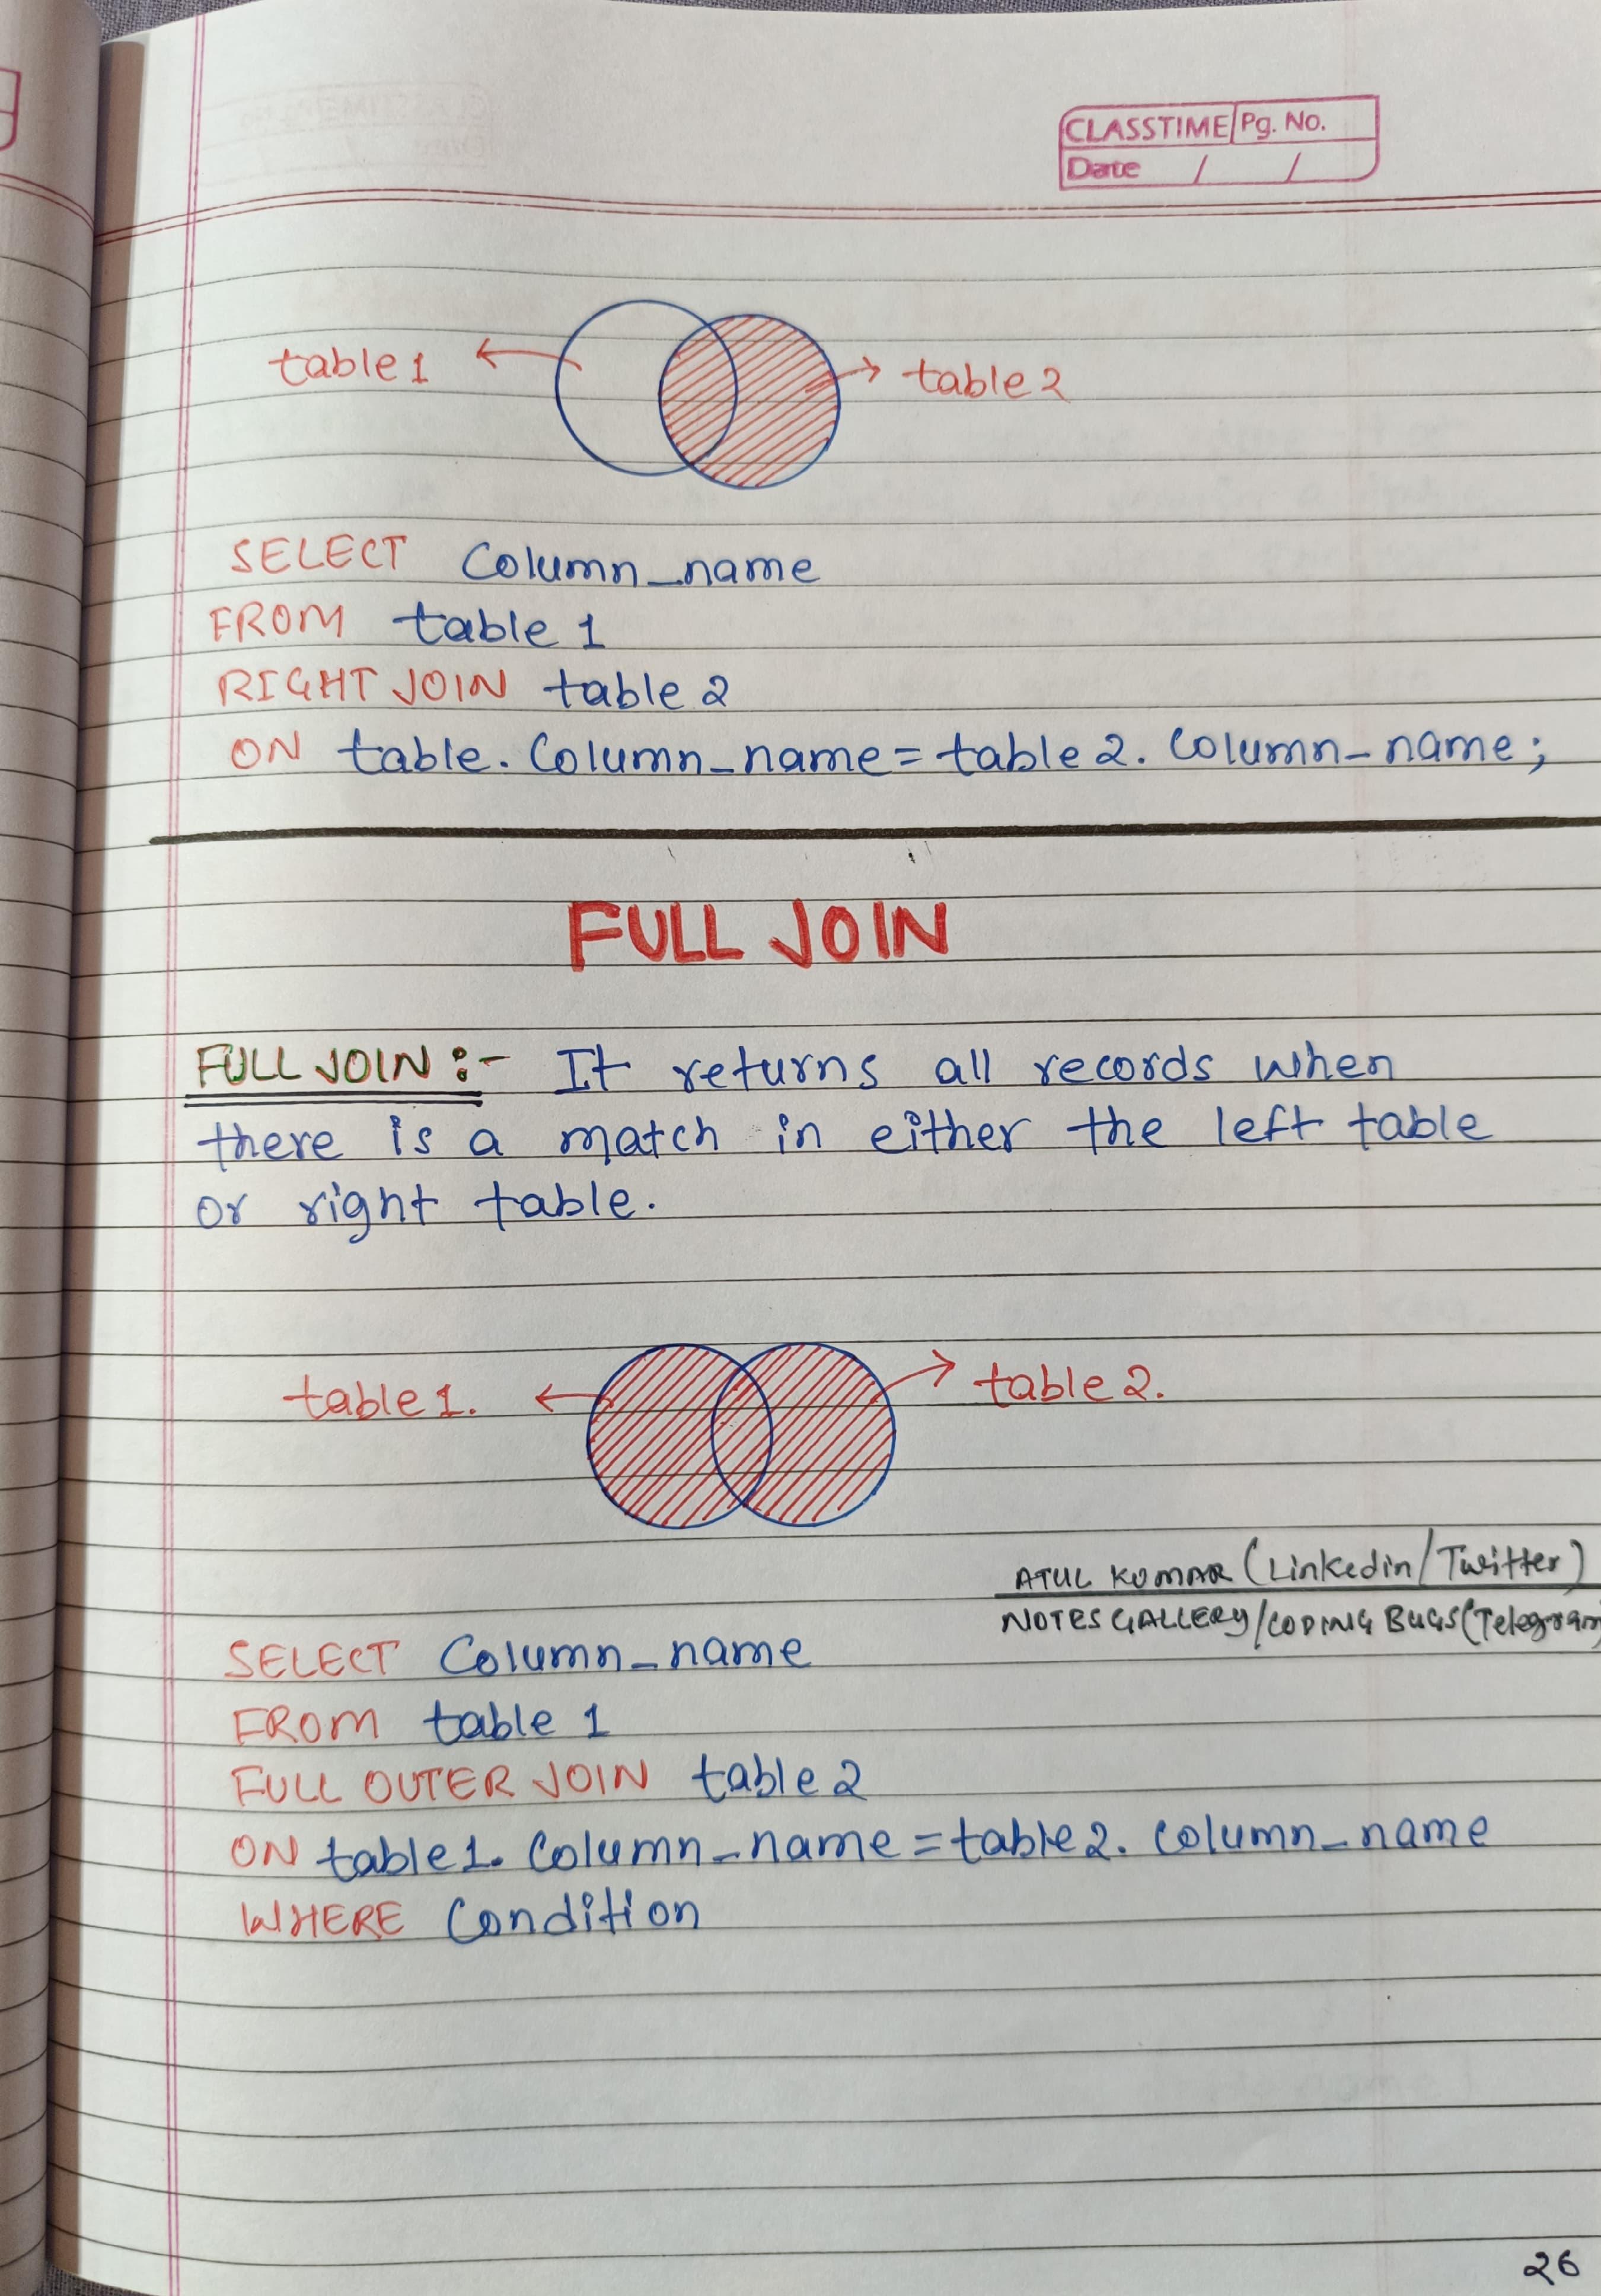 CLASSTIME Pg. No.
Date / /
table 1 table 2
SELECT Column_name
FROM table 1
RIGHT JOIN table 2
ON table. Column_name = table 2. Column_name;
FULL JOIN
FULL JOIN :- It returns all records when
there is a match in either the left table
or right table.
table 1. table 2.
ATUL KUMAR (Linkedin/Twitter)
NOTES GALLERY/CODING BUGS (Telegram
SELECT Column_name
FROM table 1
FULL OUTER JOIN table 2
ON table 1. Column_name = table 2. Column_name
WHERE Condition
26